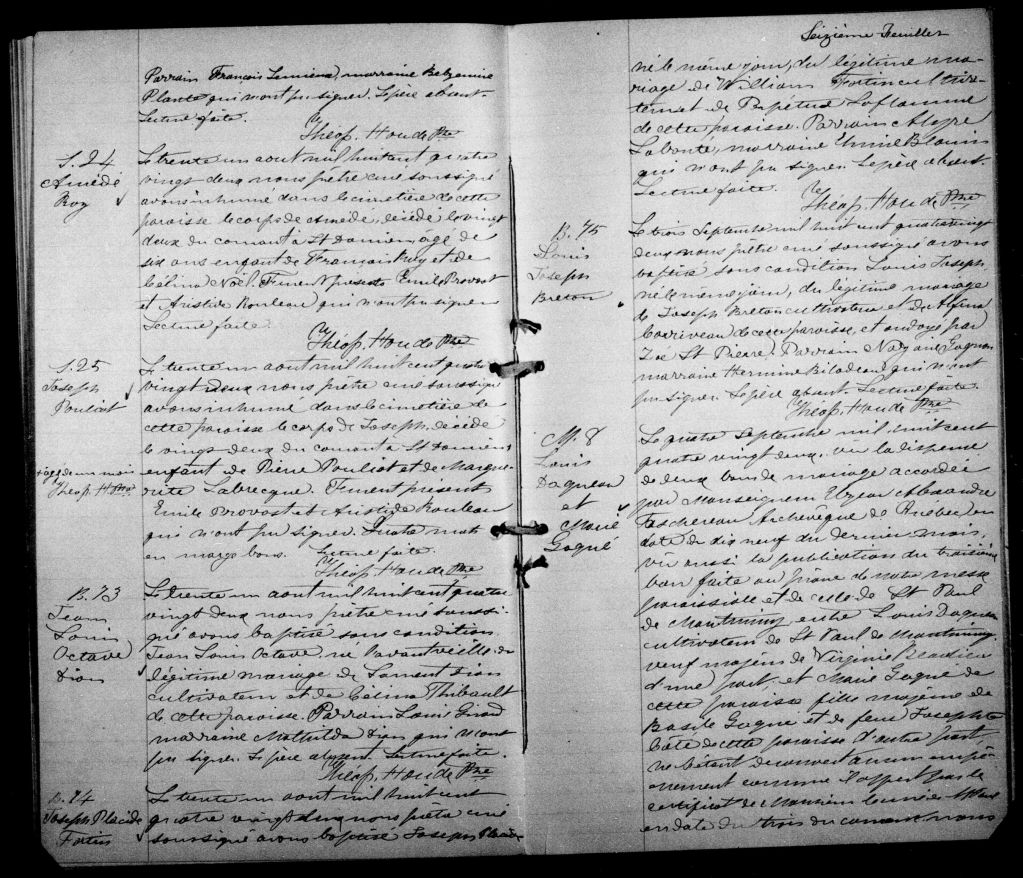 Parrain François Lemieux, marraine Belzemire
Plante qui n'ont pu signer. Le père absent.
Lecture faite.
Théop. Houde Ptre
S. 24
Amédé
Roy
Le trente un aout mil huit cent quatre
vingt deux nous prêtre curé soussigné
avons inhumé dans le cimetière de cette
paroisse le corps de Amédé, décédé le vingt
deux du courant à St Damien agé de
six ans enfant de François Roy et de
Célina Noël. Furent présents Emile Provost
et Aristide Rouleau qui n'ont pu signer
Lecture faite.
Théop. Houde Ptre
S. 25
Joseph
Pouliot
Le trente un aout mil huit cent quatre
vingt deux nous prêtre curé soussigné
avons inhumé dans le cimetière de
cette paroisse le corps de Joseph, décédé
le vingt deux du courant à St Damien
enfant de Pierre Pouliot et de Margue-
rite Labrecque. Furent présents
Emile Provost et Aristide Rouleau
qui n'ont pu signer. Quatre mots
en marge bons. Lecture faite.
Théop. Houde Ptre
+ agé de un mois
Théop. H Ptre
B. 73
Jean
Louis
Octave
Dion
Le trente un aout mil huit cent quatre
vingt deux nous prêtre curé soussi-
gné avons baptisé sous condition
Jean Louis Octave, né l'avant veille du
légitime mariage de Laurent Dion
cultivateur et de Célina Thibault
de cette paroisse. Parrain Louis
marraine Mathilda Dion qui n'ont
pu signer. Le père absent. Lecture faite.
Théop. Houde Ptre
B. 74
Joseph Placide
Fortin
Le trente un aout mil huit cent
quatre vingt deux nous prêtre curé
soussigné avons baptisé Joseph Placide
Seizième Feuillet
né le même jour, du légitime ma-
riage de William Fortin cultiva-
teur et de Perpétue Laflamme
de cette paroisse. Parrain
Labonté, marraine Emilie Blouin
qui n'ont pu signer. Le père absent.
Lecture faite.
Théop. Houde Ptre
B. 75
Louis
Joseph
Breton
Le trois Septembre mil huit cent quatre vingt
deux nous prêtre curé soussigné avons
baptisé sous condition Louis Joseph
né le même jour, du légitime mariage
de Joseph Breton cultivateur et de
Corriveau de cette paroisse, et ondoyé par
Zoé St Pierre. Parrain Nazaire Gagnon
marraine Hermine Bilodeau qui n'ont
pu signer. Le père absent. Lecture faite.
Théop. Houde Ptre
M. 8
Louis
Daqueau
et
Marie
Gagné
Le quatre Septembre mil huit cent
quatre vingt deux, vu la dispense
de deux bans de mariage accordée
par Monseigneur Elzear Alexandre
Taschereau Archevêque de Quebec en
date du dix neuf du dernier mois,
vu aussi la publication du troisième
ban faite au prône de notre messe
paroissiale et de celle de St Paul
de Montminy entre Louis
cultivateur de St Paul de Montminy
veuf majeur de Virginie
d'une part, et Marie Gagné de
cette paroisse fille majeure de
Basile Gagné et de feue Josephte
Côté de cette paroisse d'autre part,
ne s'étant découvert aucun empê-
chement comme il appert par le
certificat de Monsieur le curé
en date du trois du courant nous